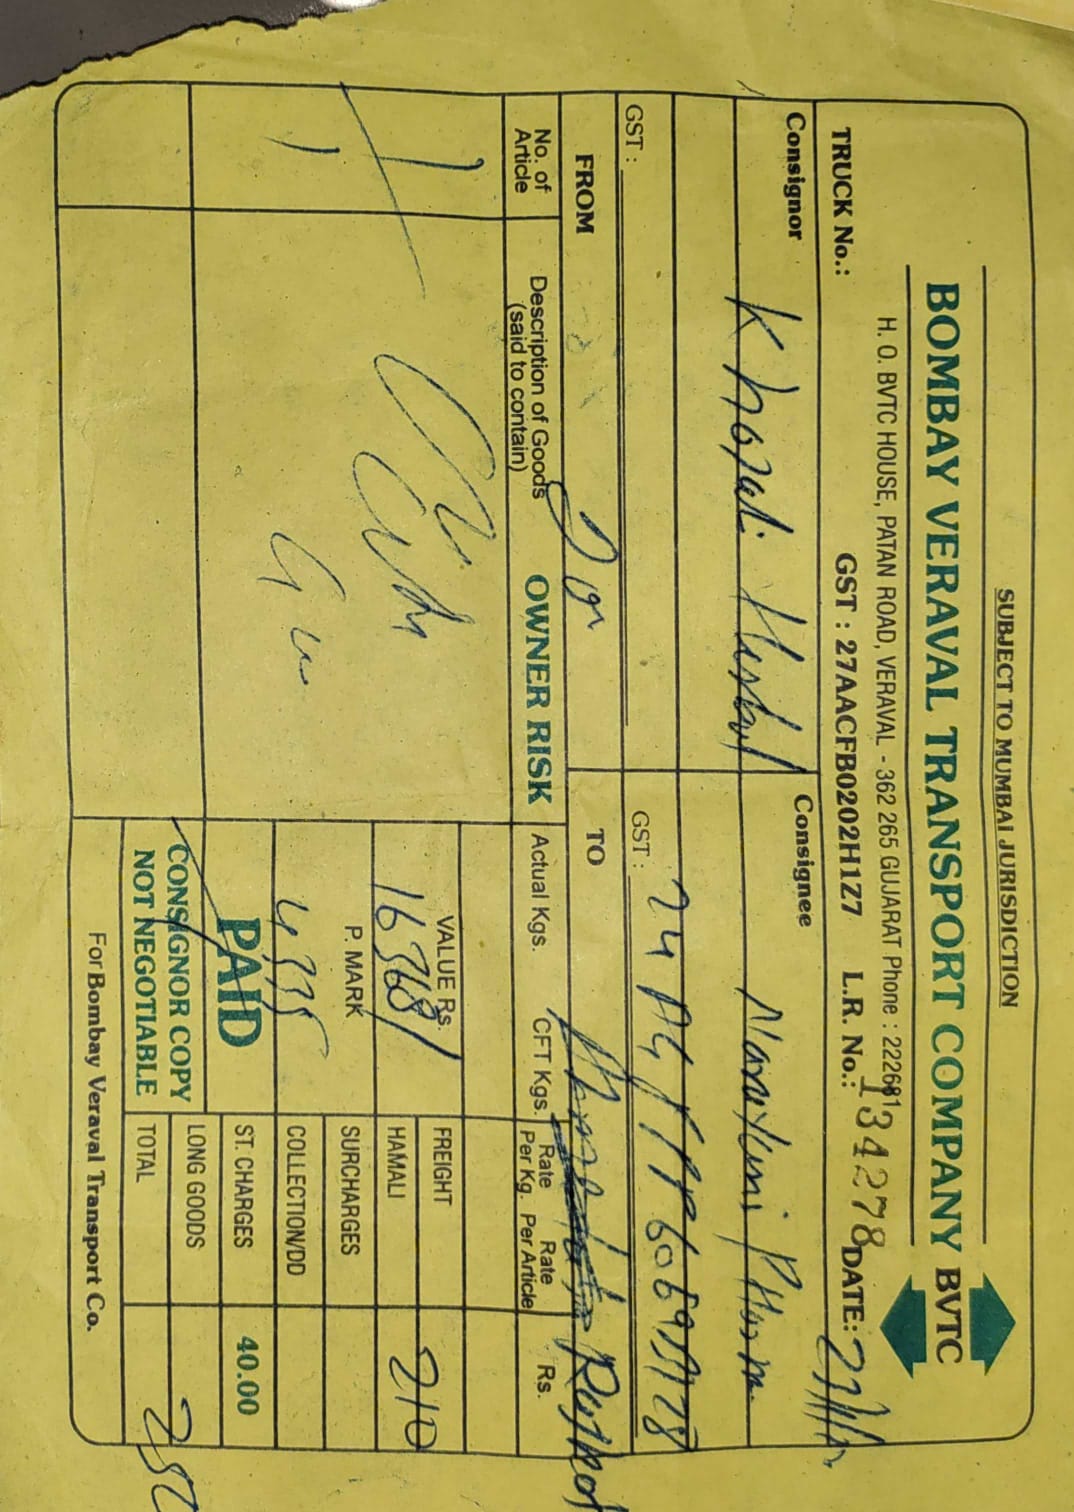 SUBJECT TO MUMBAI JURISDICTION
BOMBAY VERAVAL TRANSPORT COMPANY BVTC
H. O. BVTC HOUSE, PATAN ROAD, VERAVAL - 362 265 GUJARAT Phone : 222681
TRUCK No.: GST : 27AACFB0202H1Z7 L.R. No.: 134278 DATE:
Consignor Consignee
Khojati Herbal
GST : GST :
FROM TO
Rajkot
No. of Article Description of Goods (said to contain) OWNER RISK Actual Kgs. CFT Kgs. Rate Per Kg. Rate Per Article Rs.
VALUE Rs. FREIGHT
16368/ HAMALI 210
P. MARK SURCHARGES
4335 COLLECTION/DD
PAID ST. CHARGES 40.00
CONSIGNOR COPY LONG GOODS
NOT NEGOTIABLE TOTAL
For Bombay Veraval Transport Co.